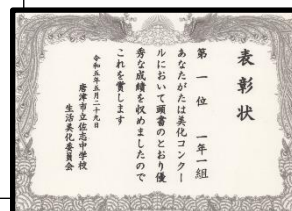 表彰状
第一位 一年一組
あなたがたは美化コンクー
ルにおいて頭書のとおり優
秀な成績を収めましたので
これを賞します
令和五年五月二十九日
唐津市立佐志中学校
生活美化委員会